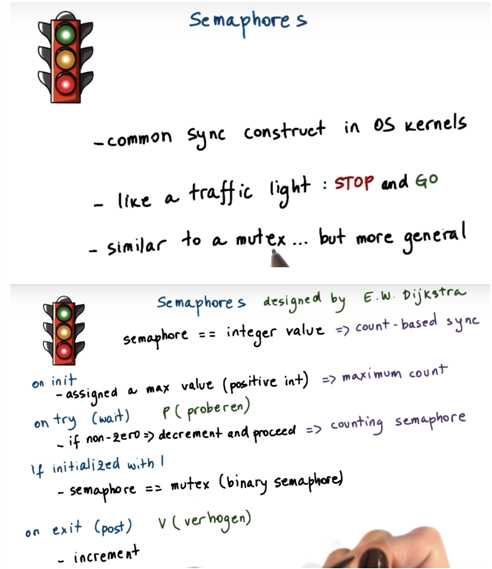 Semaphores
- common sync construct in OS kernels
- like a traffic light : STOP and GO
- similar to a mutex ... but more general
Semaphores designed by E.W. Dijkstra
semaphore == integer value => count-based sync
on init
- assigned a max value (positive int) => maximum count
on try (wait) P (proberen)
- if non-zero => decrement and proceed => counting semaphore
If initialized with 1
- semaphore == mutex (binary semaphore)
on exit (post) V (verhogen)
- increment